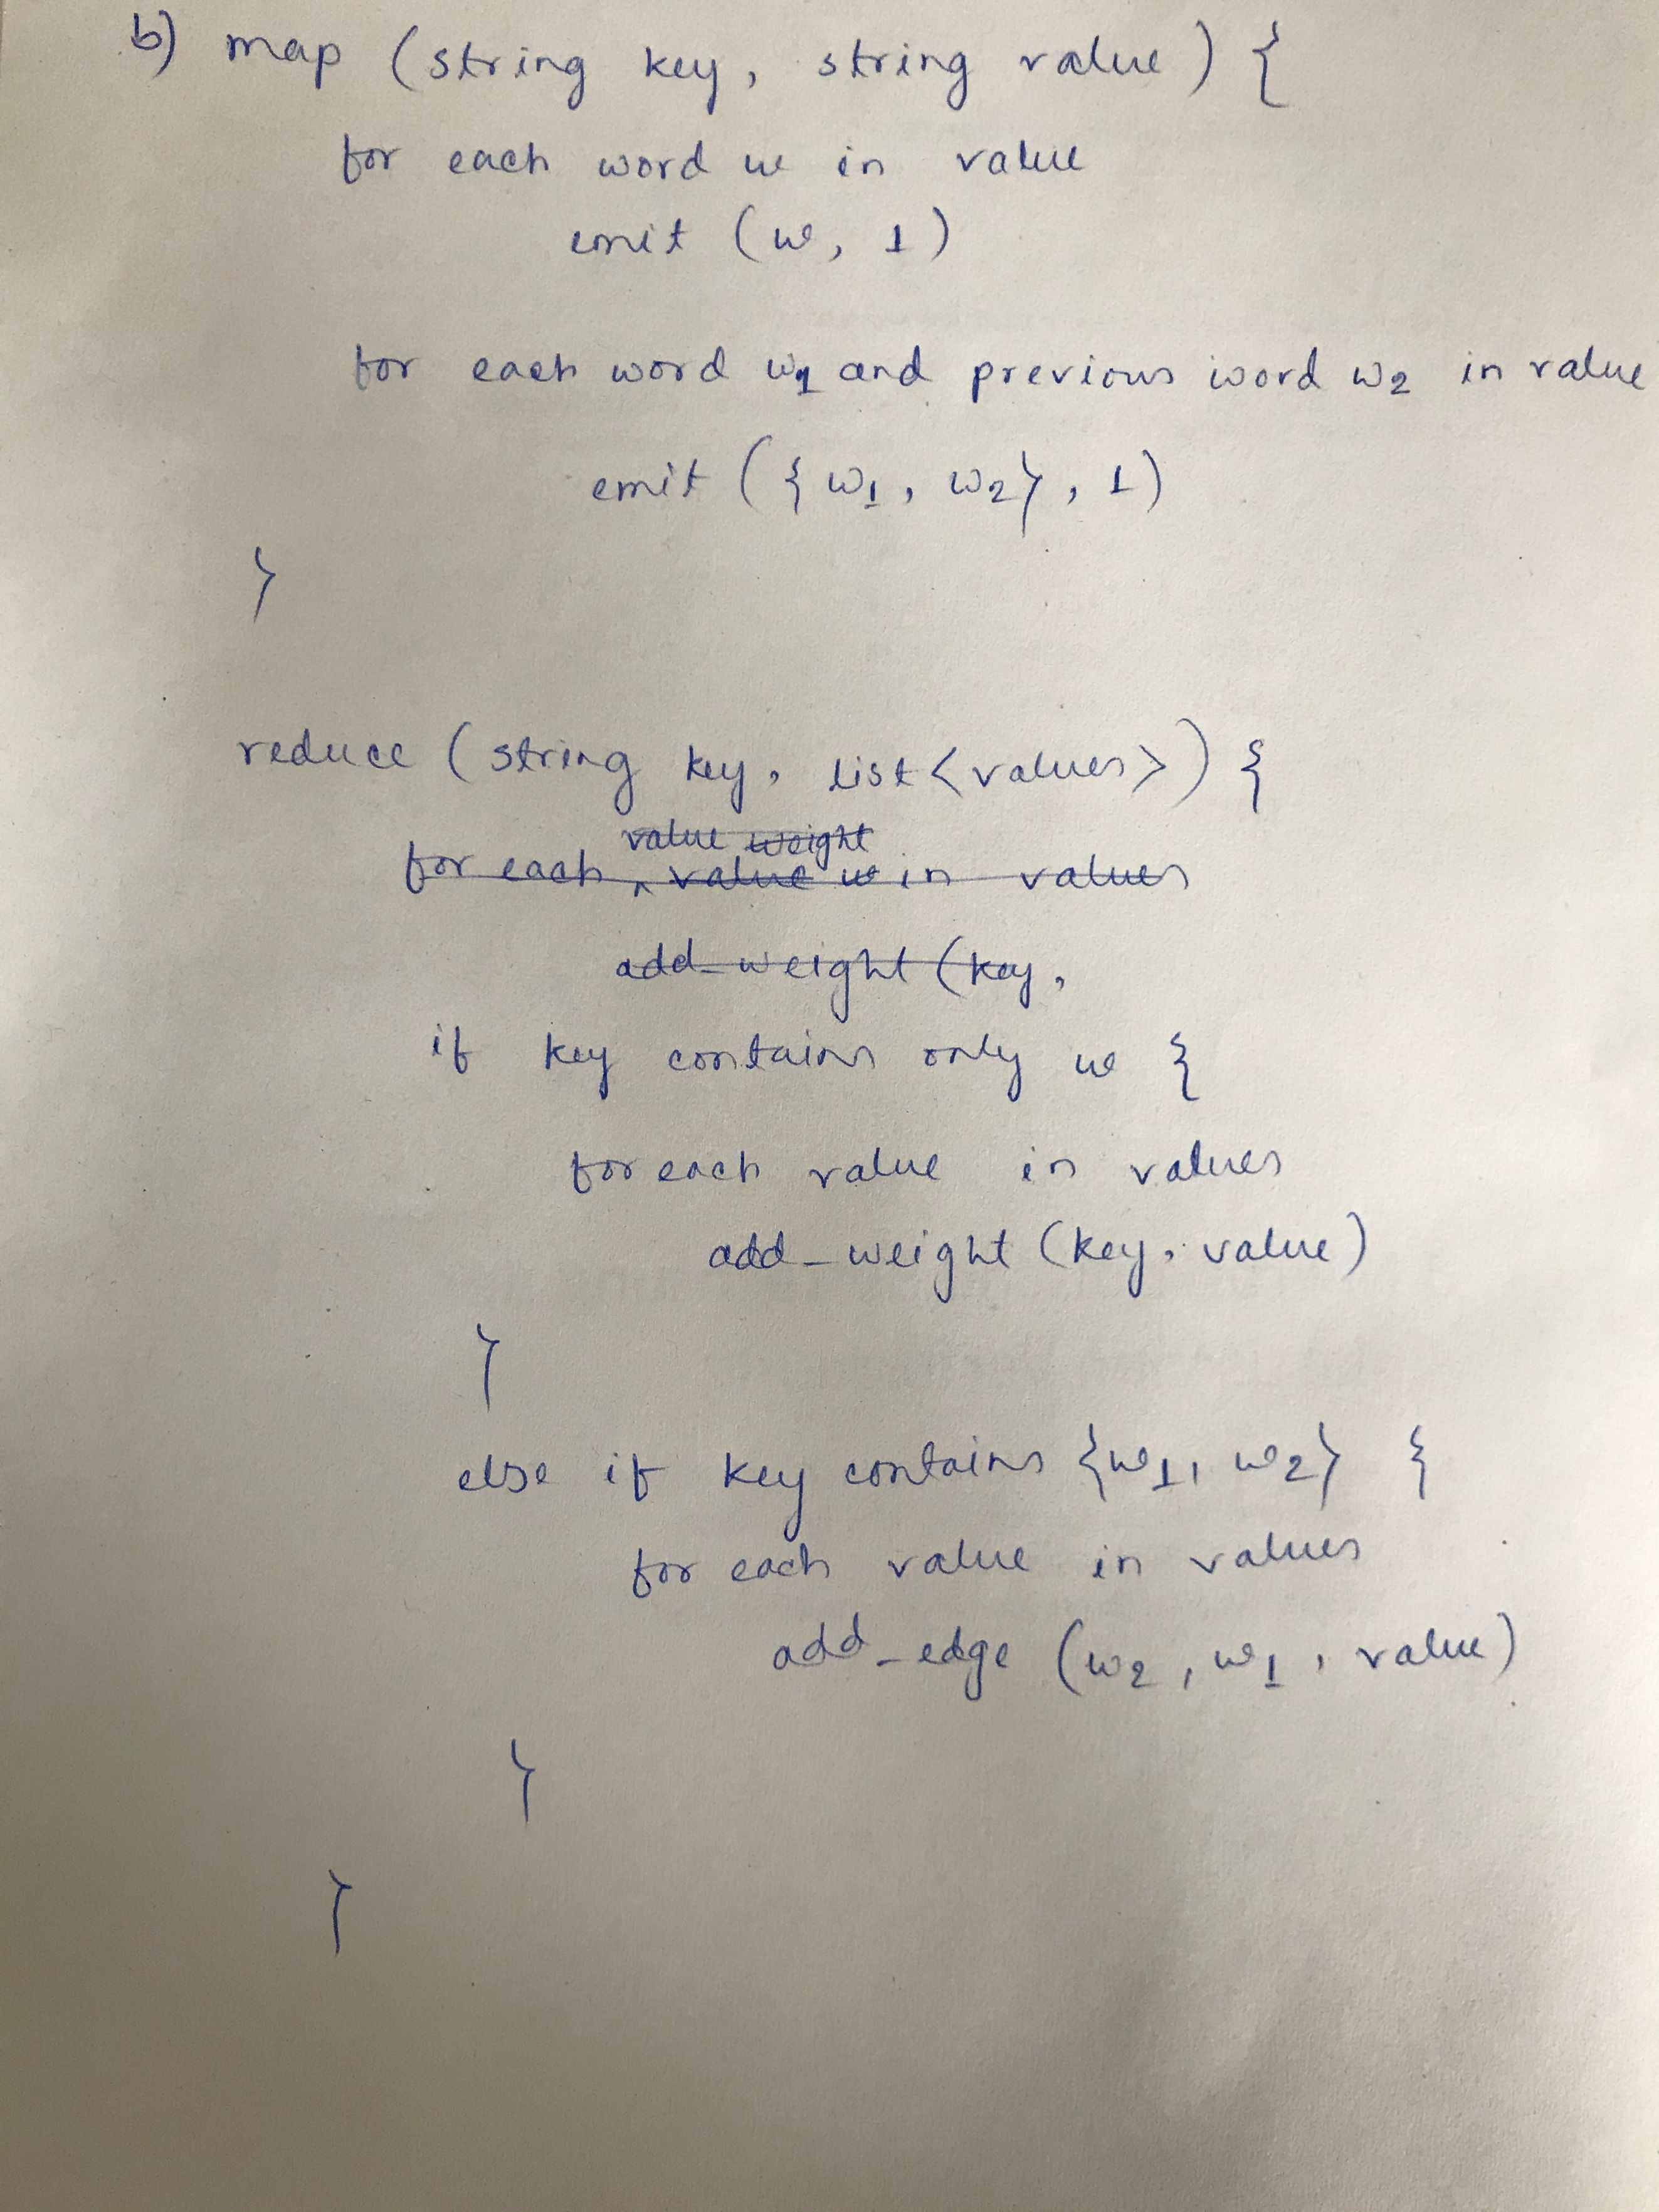 b) map (string key, string value) {
for each word w in value
emit (w, 1)
for each word w1 and previous word w2 in value
emit ({w1, w2}, 1)
}
reduce (string key, list<values>) {
value weight
for each ^ value w in values
add_weight (key,
if key contains only w {
for each value in values
add_weight (key, value)
}
else if key contains {w1, w2} {
for each value in values
add_edge (w2, w1, value)
}
}